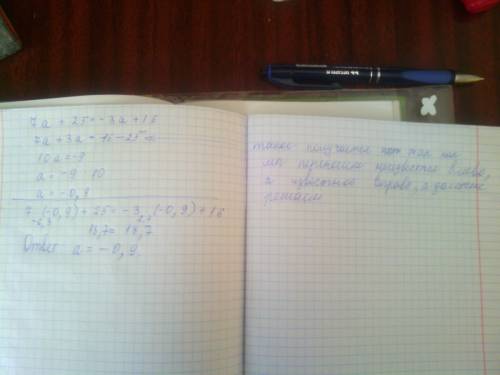 7a + 25 = -3a + 16
7a + 3a = 16 - 25
10a = -9
a = -9 : 10
a = -0,9
7 · (-0,9) + 25 = -3 · (-0,9) + 16
-6,3 2,7
18,7 = 18,7
Ответ a = -0,9.
такое получается
мы переносим неизвестное влево,
а известное вправо, а дальше
решаем